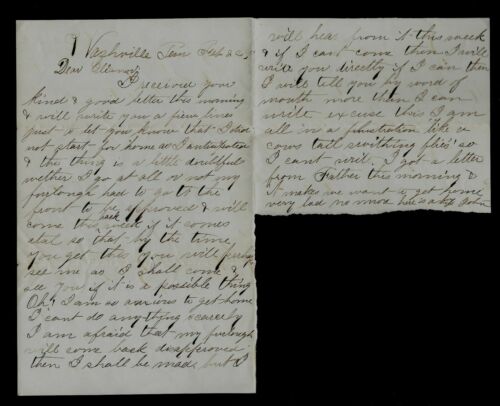 Nashville Ten Feb 22
Dear Ellinor
I received your
kind & good letter this morning
& will write you a few lines
just to let you know that I did
not start for home as I anticipated
& the thing is a little doubtful
wether I go at all or not my
furlough had to go to the
front to be approved & will
come back this week if it comes
atal so that by the time
you get this you will perhaps
see me as I shall come &
see you if it is a possible thing
Oh! I am so anxious to get home
I cant do anything scarcely
I am afraid that my furlough
will come back disapproved
then I shall be mad but I
will hear from it this week
& if I cant come then I will
write you directly if I can then
I will tell you by word of
mouth more than I can
write excuse this I am
all in a flustration like a
cows tail swithing flies so
I cant write I got a letter
from Father this morning &
it makes me want to get home
very bad no more here is a kiss John